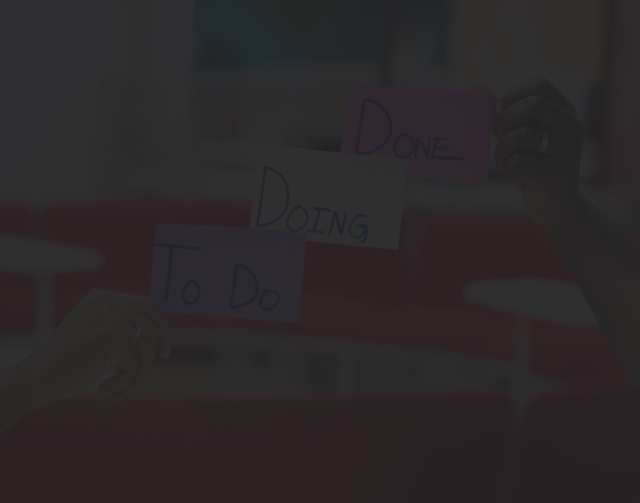 DONE
DOING
TO DO